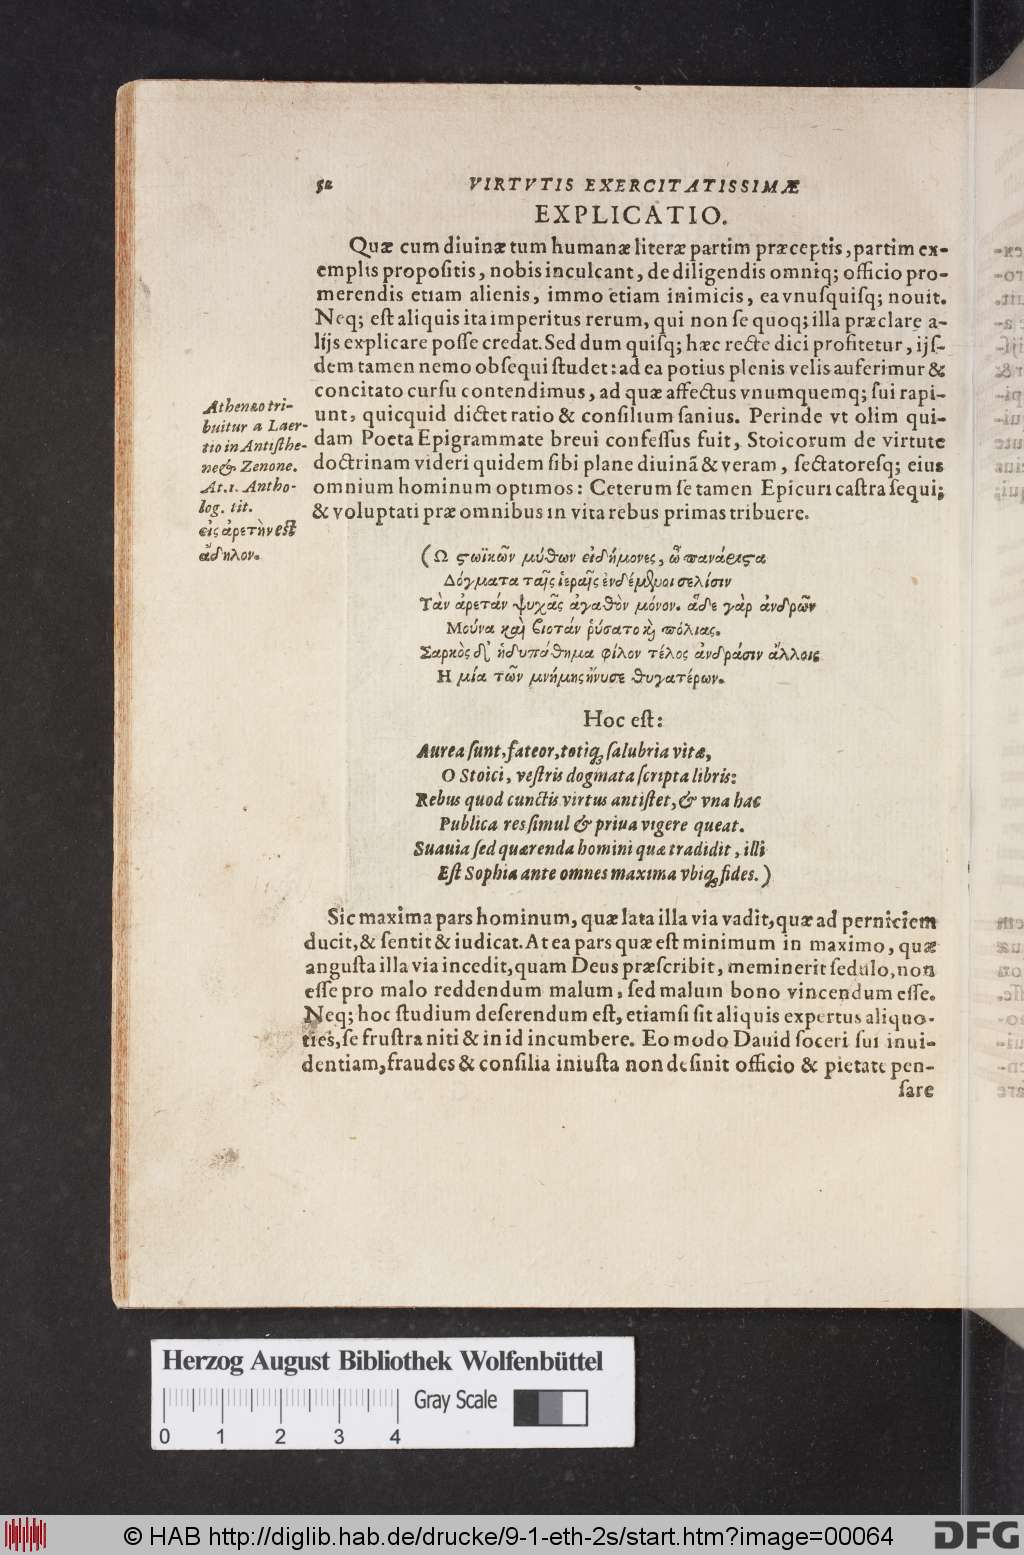 52 VIRTVTIS EXERCITATISSIMÆ
EXPLICATIO.
Quæ cum diuinæ tum humanæ literæ partim præceptis, partim ex-
emplis propoſitis, nobis inculcant, de diligendis omniq; officio pro-
merendis etiam alienis, immo etiam inimicis, ea vnuſquiſq; nouit.
Neq; eſt aliquis ita imperitus rerum, qui non ſe quoq; illa præclare a-
lijs explicare poſſe credat. Sed dum quiſq; hæc recte dici profitetur, ijſ-
dem tamen nemo obſequi ſtudet: ad ea potius plenis velis auferimur &
concitato curſu contendimus, ad quæ affectus vnumquemq; ſui rapi-
unt, quicquid dictet ratio & conſilium ſanius. Perinde vt olim qui-
dam Poeta Epigrammate breui confeſſus fuit, Stoicorum de virtute
doctrinam videri quidem ſibi plane diuinã & veram, ſectatoreſq; eius
omnium hominum optimos: Ceterum ſe tamen Epicuri caſtra ſequi;
& voluptati præ omnibus in vita rebus primas tribuere.
Athenæo tri-
buitur a Laer-
tio in Antiſthe-
ne & Zenone.
At. 1. Antho-
log. tit.
εἰς ἀρετὴν eſt
ἄδηλον.
(Ω ϛωϊκῶν μύθων εἰδήμονες, ὦ πανάριϛα
Δόγματα ταῖς ἱεραῖς ἐνθέμϑυοι σελίσιν
Τὰν ἀρετάν ψυχᾶς ἀγαθὸν μόνον. ἅδε γὰρ ἀνδρῶν
Μούνα καὶ βιοτάν ῥύσατο κ̀ πόλιας.
Σαρκὸς δ' ἡδυπάθημα φίλον τέλος ἀνδράσιν ἄλλοις
Η μία τῶν μνήμης ἤνυσε θυγατέρων.
Hoc eſt:
Aurea ſunt, fateor, totiq; ſalubria vitæ,
O Stoici, veſtris dogmata ſcripta libris:
Rebus quod cunctis virtus antiſtet, & vna hac
Publica res ſimul & priua vigere queat.
Suauia ſed quærenda homini quæ tradidit, illi
Eſt Sophia ante omnes maxima vbiq; fides.)
Sic maxima pars hominum, quæ lata illa via vadit, quæ ad perniciem
ducit, & ſentit & iudicat. At ea pars quæ eſt minimum in maximo, quæ
anguſta illa via incedit, quam Deus præſcribit, meminerit ſedulo, non
eſſe pro malo reddendum malum, ſed malum bono vincendum eſſe.
Neq; hoc ſtudium deſerendum eſt, etiamſi ſit aliquis expertus aliquo-
ties, ſe fruſtra niti & in id incumbere. Eo modo Dauid ſoceri ſui inui-
dentiam, fraudes & conſilia iniuſta non deſinit officio & pietate pen-
ſare
Herzog August Bibliothek Wolfenbüttel
Gray Scale
0 1 2 3 4
© HAB http://diglib.hab.de/drucke/9-1-eth-2s/start.htm?image=00064
DFG